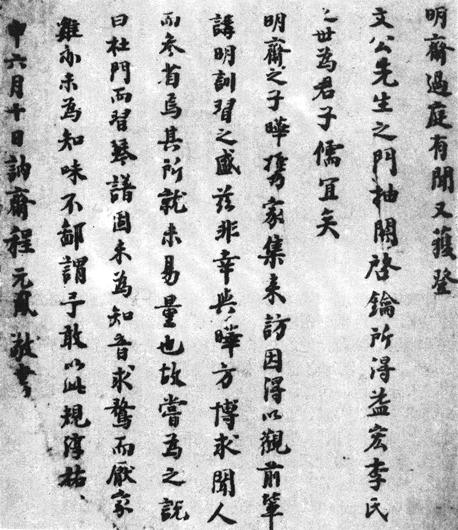 明齋過庭有聞又獲登
文公先生之門抽關啓鑰所得益宏李氏
之世為君子儒宜矣
明齋之子曄攜家集来訪因得以觀前輩
講明訓習之盛茲非幸與曄方博求聞人
而參省焉其所就未易量也故嘗為之說
曰杜門而習琴譜固未為知音求鶩而厭家
雞亦未為知味不鄙謂予敢以此規淳祐
申六月十日訥齋程元鳳敬書